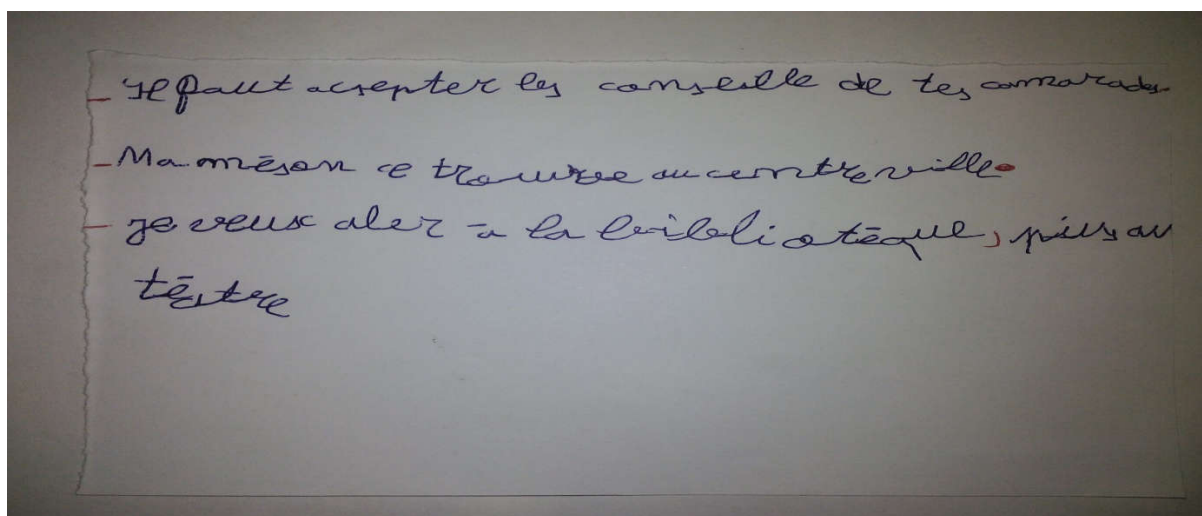 - Il faut acsepter les conseille de tes camarades
- Ma méson ce trouve au centre ville.
- je veux aler à la bibliotéque, puis au
téatre